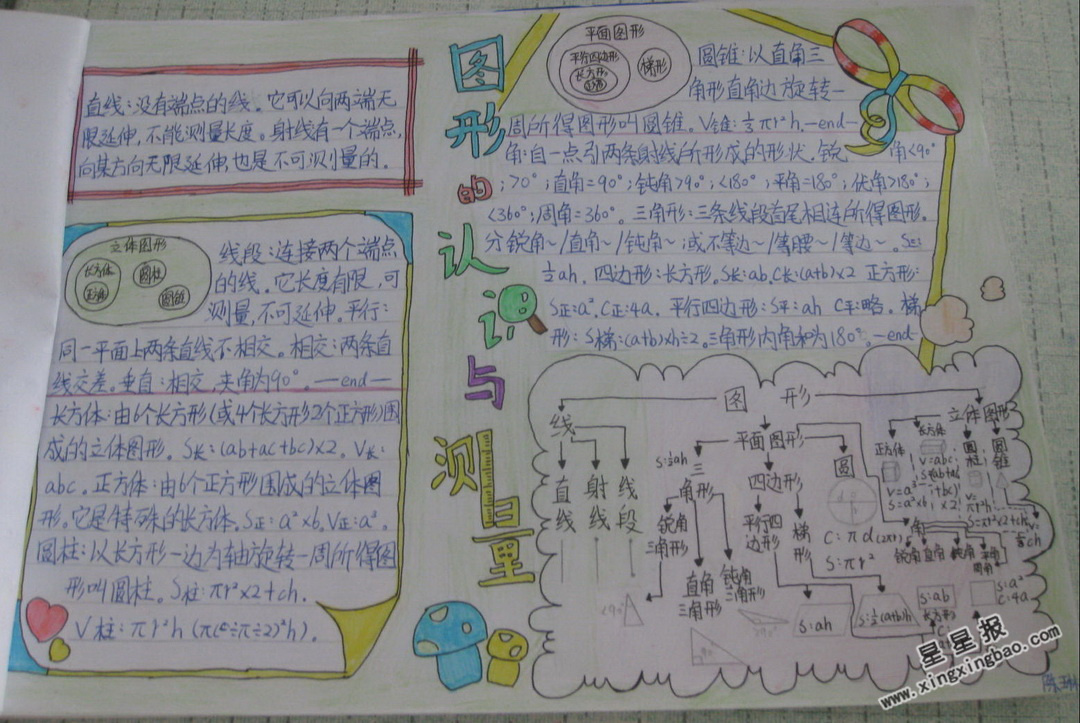 图形的认识与测量
直线:没有端点的线。它可以向两端无
限延伸,不能测量长度。射线有一个端点,
向某方向无限延伸,也是不可测量的.
立体图形
长方体
正方体
圆柱
圆锥
线段:连接两个端点
的线。它长度有限,可
测量,不可延伸。平行:
同一平面上两条直线不相交。相交:两条直
线交差。垂直:相交,夹角为90°。—end—
长方体:由6个长方形(或4个长方形2个正方形)围
成的立体图形。S长:(ab+ac+bc)×2。V长:
abc。正方体:由6个正方形围成的立体图
形。它是特殊的长方体。S正:a²×6。V正:a³。
圆柱:以长方形一边为轴旋转一周所得图
形叫圆柱。S柱:πr²×2+ch.
V柱:πr²h(π(c÷π÷2)²h).
平面图形
平行四边形
长方形
正方形
梯形
圆锥:以直角三
角形直角边旋转一
周所得图形叫圆锥。V锥:⅓πr²h.—end—
角:自一点引两条射线所形成的形状。锐角<90°
;>0°;直角=90°;钝角>90°;<180°;平角=180°;优角>180°;
<360°;周角=360°。三角形:三条线段首尾相连所得图形。
分锐角~/直角~/钝角~;或不等边~/等腰~/等边~。S△:
½ah。四边形:长方形。S长:ab.C长:(a+b)×2 正方形:
S正:a².C正:4a。平行四边形:S平:ah C平:略。梯
形:S梯:(a+b)×h÷2。三角形内角和为180°。—end—
图形
线
直线
射线
线段
平面图形
S:½ah
三角形
锐角三角形
直角三角形
钝角三角形
四边形
平行四边形
梯形
圆
C:πd(2πr)
S:πr²
立体图形
正方体
V=a³
长方体
V=abc
圆柱
V=πr²h
S=πr²×2+ch
圆锥
角
锐角
直角
钝角
平角
周角
<90°
S:ah
S:½(a+b)h
S:ab
长方形
S:a²
C:4a
星星报
www.xingxingbao.com